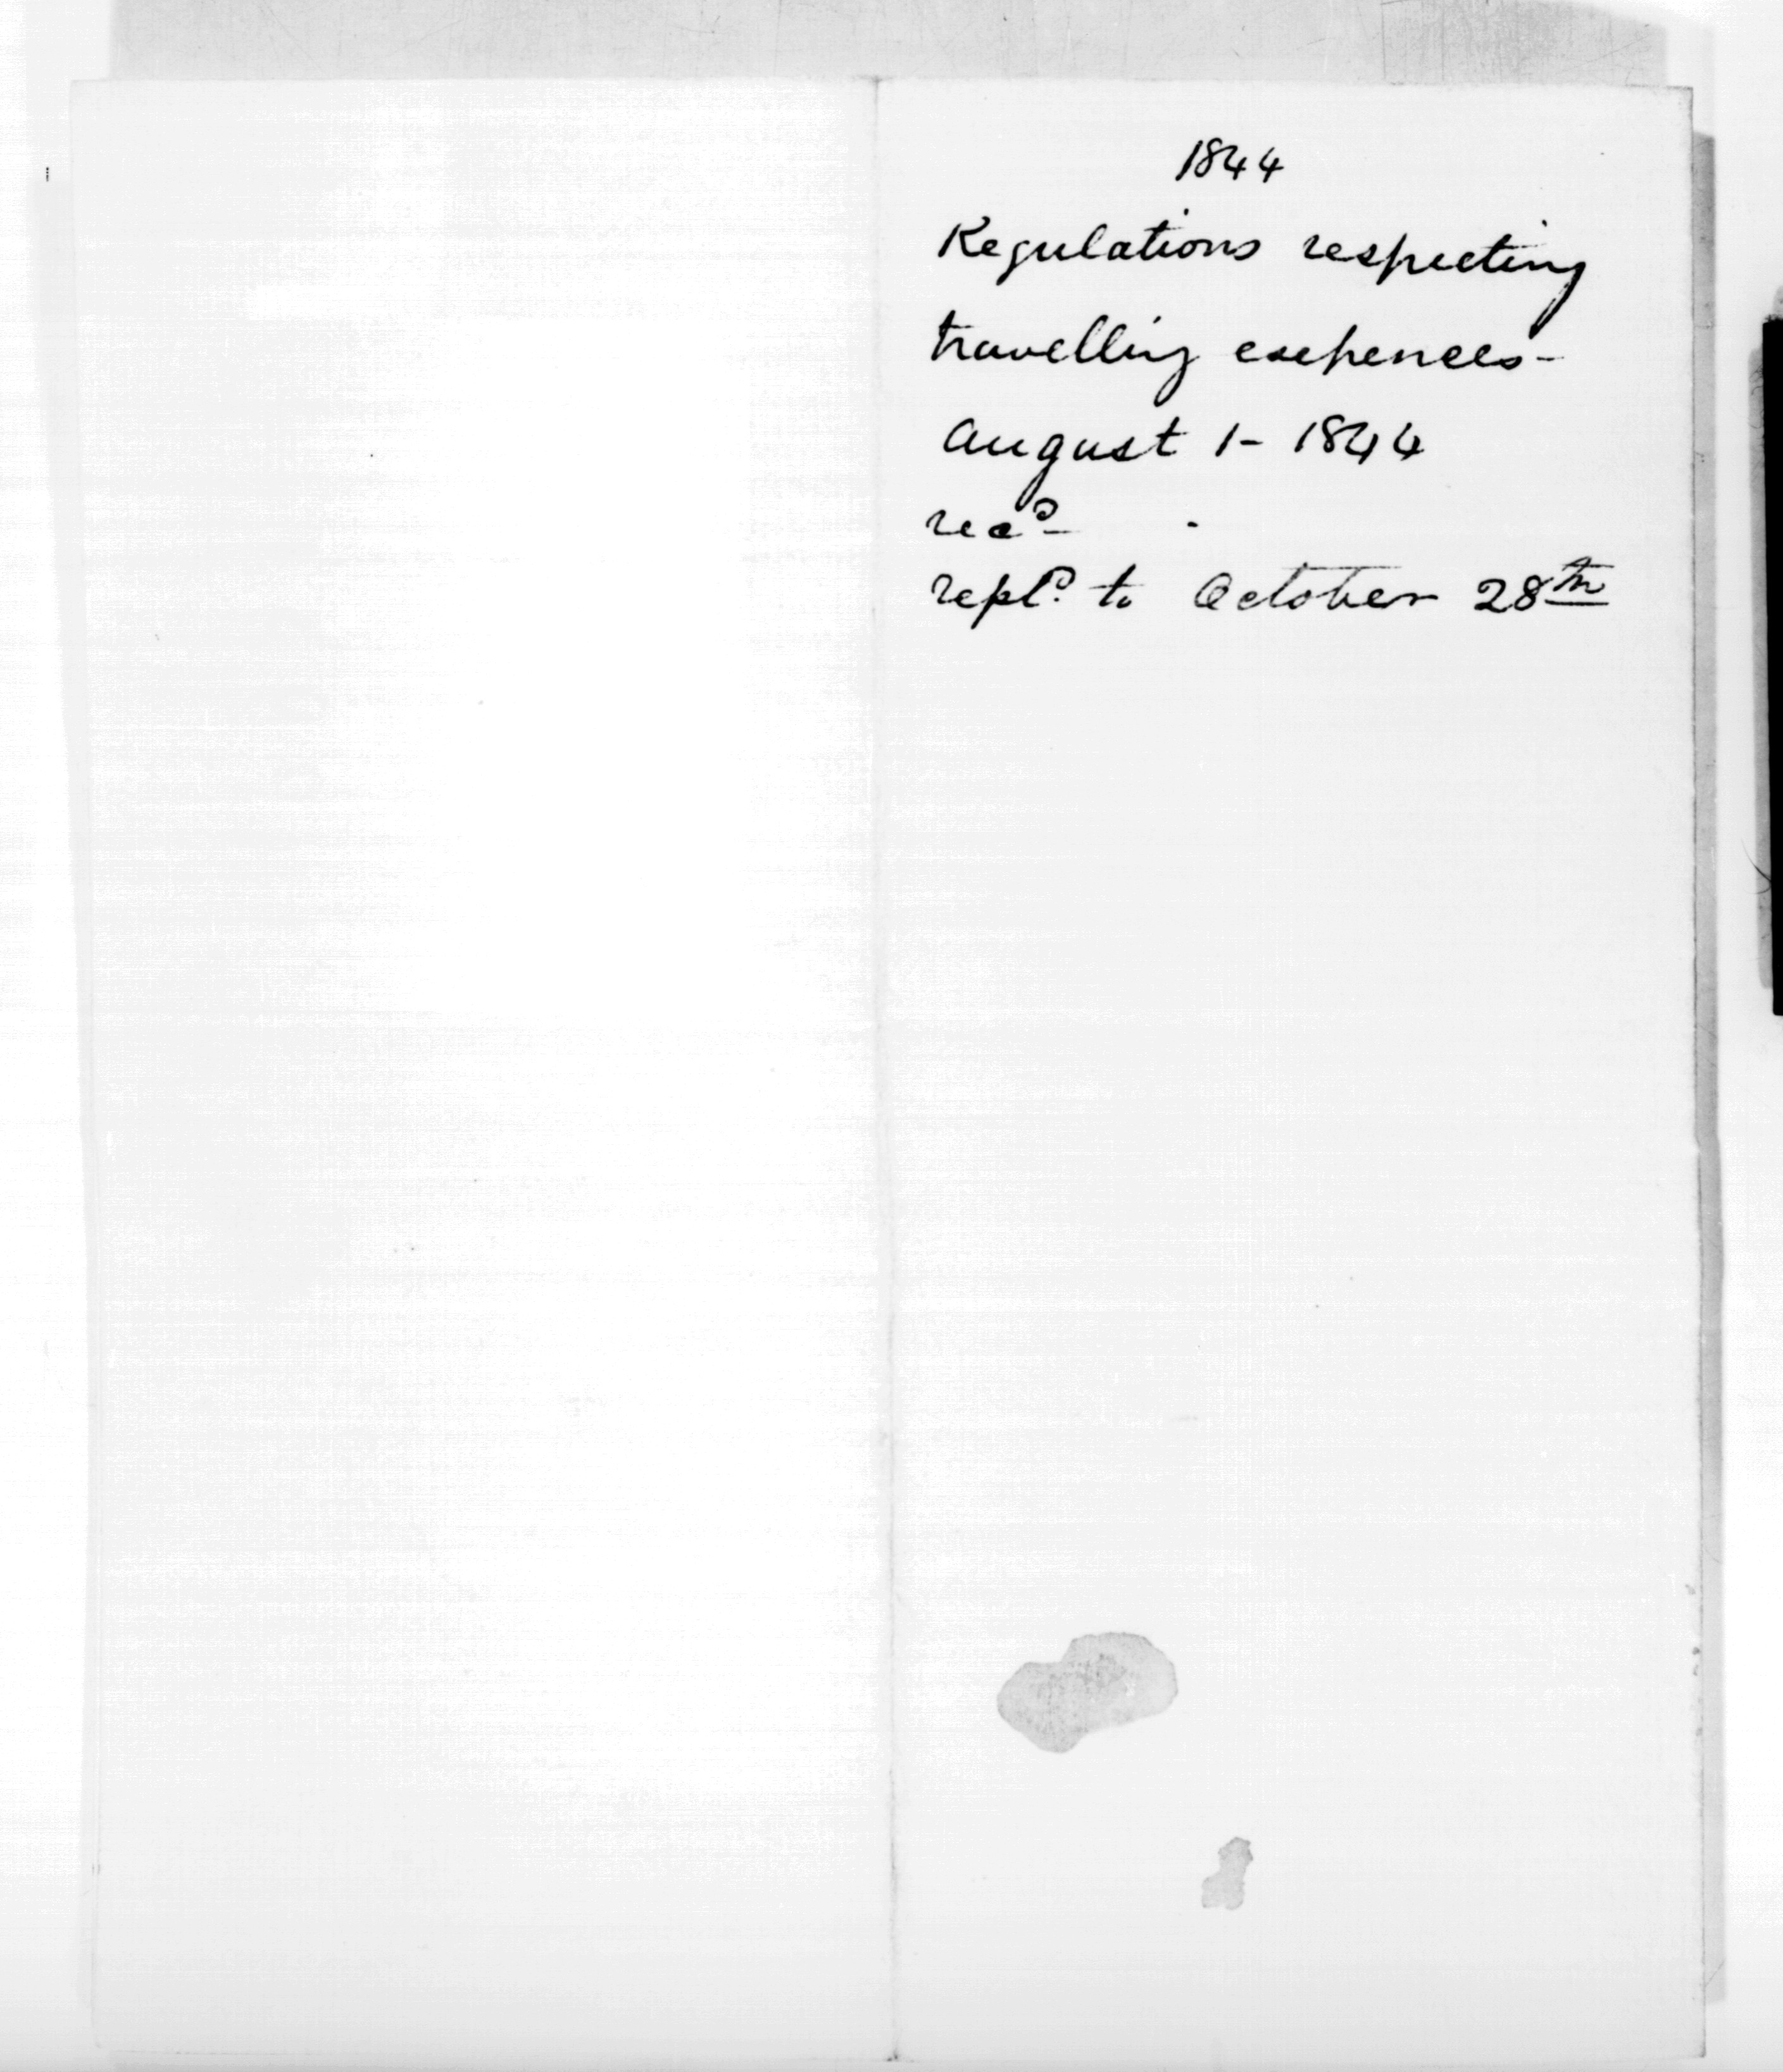 1844
Regulations respecting
travelling expences -
August 1 - 1844
recd -
repld. to October 28th